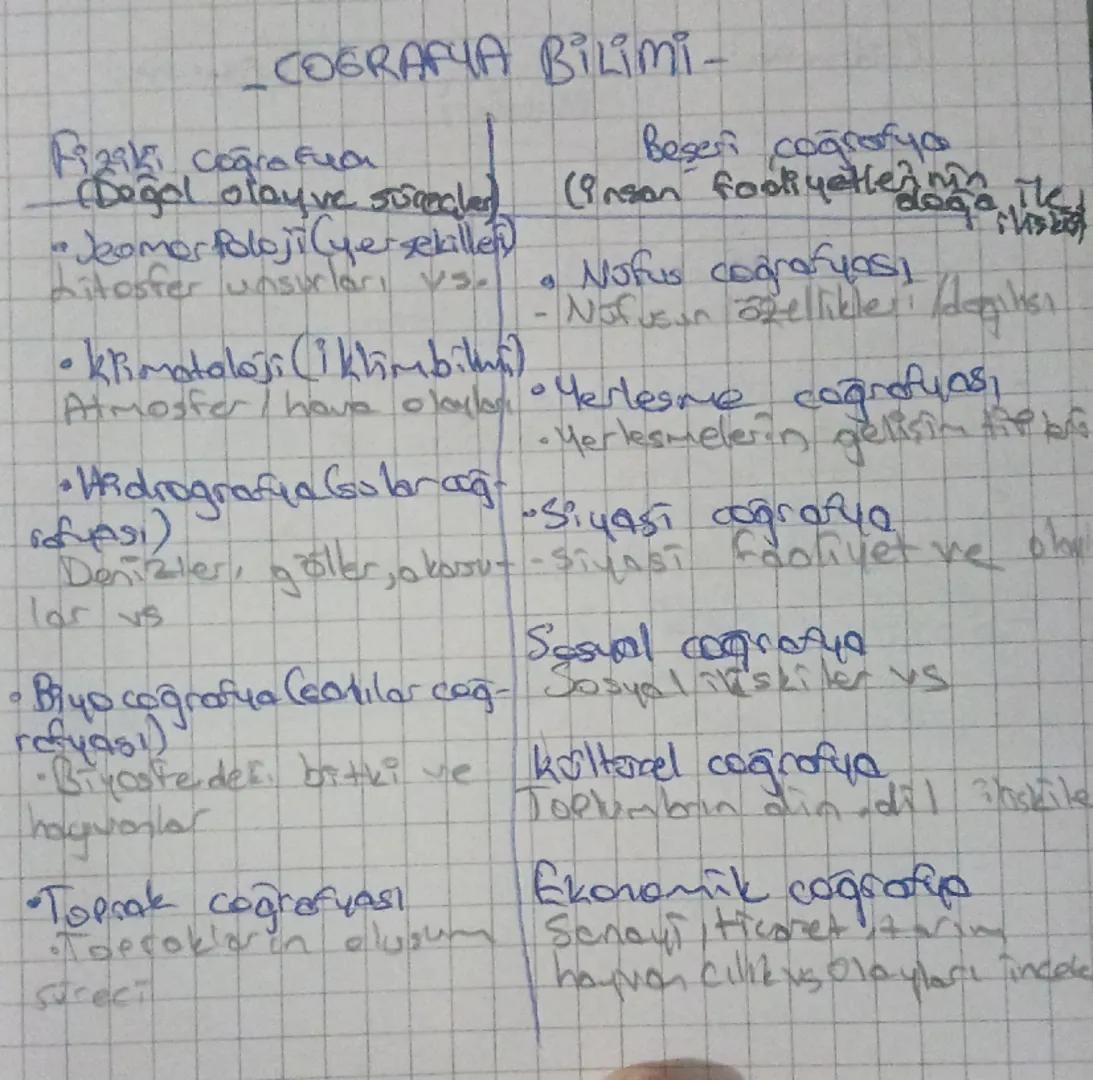 - COĞRAFYA BİLİMİ -
Fiziki coğrafya
(Doğal olay ve süreçler)
• Jeomorfoloji (yer şekilleri)
Litosfer unsurları vs.
• Klimatoloji (iklimbilimi)
Atmosfer / hava olayları
• Hidrografya (sular coğ-
rafyası)
Denizler, göller, akarsu-
lar vs
• Biyocoğrafya (canlılar coğ-
rafyası)
• Biyosferdeki bitki ve
hayvanlar
• Toprak coğrafyası
• Toprakların oluşum
süreci
Beşeri coğrafya
(İnsan faaliyetlerinin
doğa ile
ilişkisi)
• Nüfus coğrafyası
- Nüfusun özellikleri / dağılışı
• Yerleşme coğrafyası
• Yerleşmelerin gelişim
• Siyasi coğrafya
- Siyasi faaliyet ve olay
Sosyal coğrafya
Sosyal ilişkiler vs
Kültürel coğrafya
Toplumların din, dil ilişkile
Ekonomik coğrafya
Sanayi, ticaret, tarım
hayvancılık vs olayları